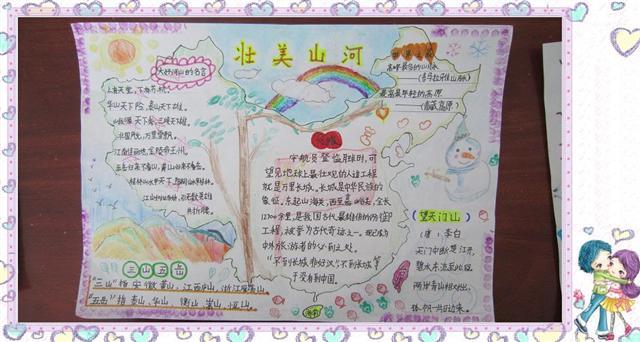 壮美山河
大好河山的名言
上有天堂，下有苏杭。
华山天下险，泰山天下雄。
北国风光，万里雪飘。
江南佳丽地，金陵帝王州。
五岳归来不看山，黄山归来不看岳。
桂林山水甲天下
江山如此多娇，引无数英雄
共折腰。
三山五岳
"三山"指安徽黄山，江西庐山，浙江雁荡山
"五岳"指泰山，华山，衡山，嵩山，恒山。
长城
宇航员登临月球时，可
望见地球上最壮观的人造工程
就是万里长城。长城是中华民族的
象征。东起山海关，西至嘉峪关，全长
12700余里，是我国古代最雄伟的防御
工程，被誉为古代奇迹之一。现已成为
中外旅游者的心驰之处。
"不到长城非好汉"，不到长城等
于没有到中国。
高峰最多的山脉
（喜马拉雅山脉）
最高最年轻的高原
（青藏高原）
望天门山
（唐）李白
天门中断楚江开，
碧水东流至此回。
两岸青山相对出，
孤帆一片日边来。